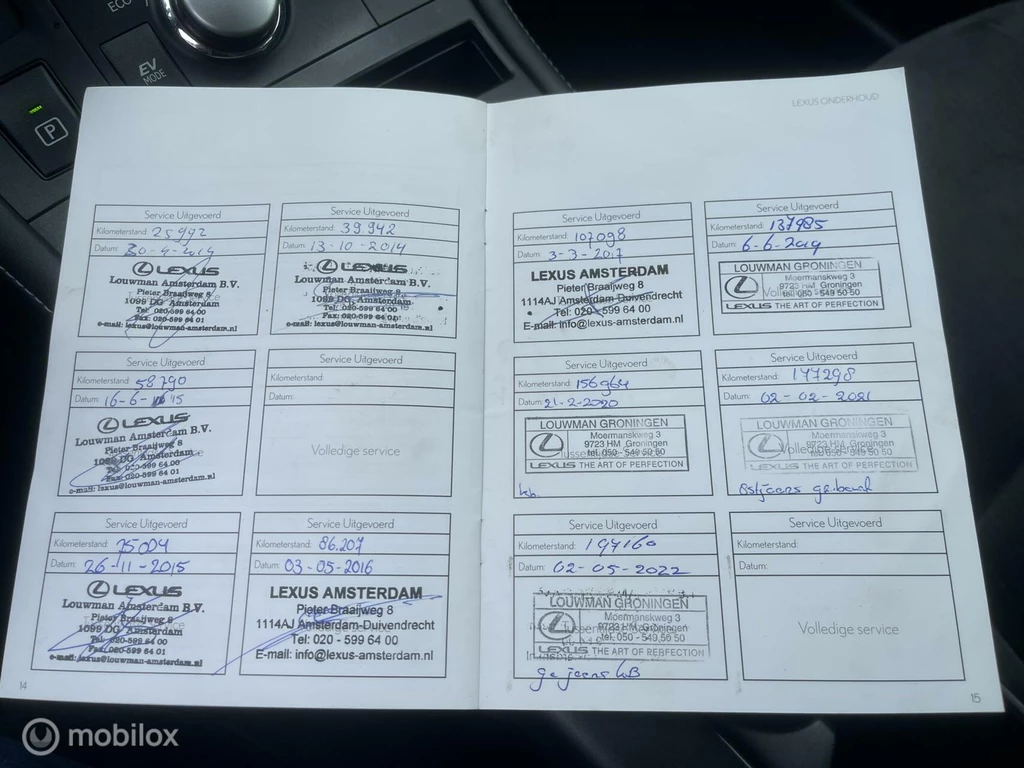 ECO
EV
MODE
P
LEXUS ONDERHOUD
Service Uitgevoerd
Kilometerstand: 25992
Datum: 30-4-2014
LEXUS
Louwman Amsterdam B.V.
Pieter Braaijweg 8
1099 DG Amsterdam
Tel: 020-599 64 00
Fax: 020-599 64 01
e-mail: lexus@louwman-amsterdam.nl
Service Uitgevoerd
Kilometerstand: 39942
Datum: 13-10-2014
LEXUS
Louwman Amsterdam B.V.
Pieter Braaijweg 8
1099 DG Amsterdam
Tel: 020-599 64 00
Fax: 020-599 64 01
e-mail: lexus@louwman-amsterdam.nl
Service Uitgevoerd
Kilometerstand: 58790
Datum: 16-6-15
LEXUS
Louwman Amsterdam B.V.
Pieter Braaijweg 8
1099 DG Amsterdam
Tel: 020-599 64 00
Fax: 020-599 64 01
e-mail: lexus@louwman-amsterdam.nl
Service Uitgevoerd
Kilometerstand:
Datum:
Volledige service
Service Uitgevoerd
Kilometerstand: 75004
Datum: 26-11-2015
LEXUS
Louwman Amsterdam B.V.
Pieter Braaijweg 8
1099 DG Amsterdam
Tel: 020-599 64 00
Fax: 020-599 64 01
e-mail: lexus@louwman-amsterdam.nl
Service Uitgevoerd
Kilometerstand: 86.207
Datum: 03-05-2016
LEXUS AMSTERDAM
Pieter Braaijweg 8
1114AJ Amsterdam-Duivendrecht
Tel: 020 - 599 64 00
E-mail: info@lexus-amsterdam.nl
14
Service Uitgevoerd
Kilometerstand: 107098
Datum: 3-3-2017
LEXUS AMSTERDAM
Pieter Braaijweg 8
1114AJ Amsterdam-Duivendrecht
Tel: 020 - 599 64 00
E-mail: info@lexus-amsterdam.nl
Service Uitgevoerd
Kilometerstand: 137985
Datum: 6-6-2019
LOUWMAN GRONINGEN
Moermanskweg 3
9723 HM Groningen
tel. 050 - 549 50 50
LEXUS THE ART OF PERFECTION
Service Uitgevoerd
Kilometerstand: 156964
Datum: 21-2-2020
LOUWMAN GRONINGEN
Moermanskweg 3
9723 HM Groningen
tel. 050 - 549 50 50
LEXUS THE ART OF PERFECTION
Service Uitgevoerd
Kilometerstand: 177298
Datum: 02-02-2021
LOUWMAN GRONINGEN
Moermanskweg 3
9723 HM Groningen
tel. 050 - 549 50 50
LEXUS THE ART OF PERFECTION
Service Uitgevoerd
Kilometerstand: 197160
Datum: 02-05-2022
LOUWMAN GRONINGEN
Moermanskweg 3
9723 HM Groningen
tel. 050 - 549 50 50
LEXUS THE ART OF PERFECTION
Service Uitgevoerd
Kilometerstand:
Datum:
Volledige service
15
mobilox